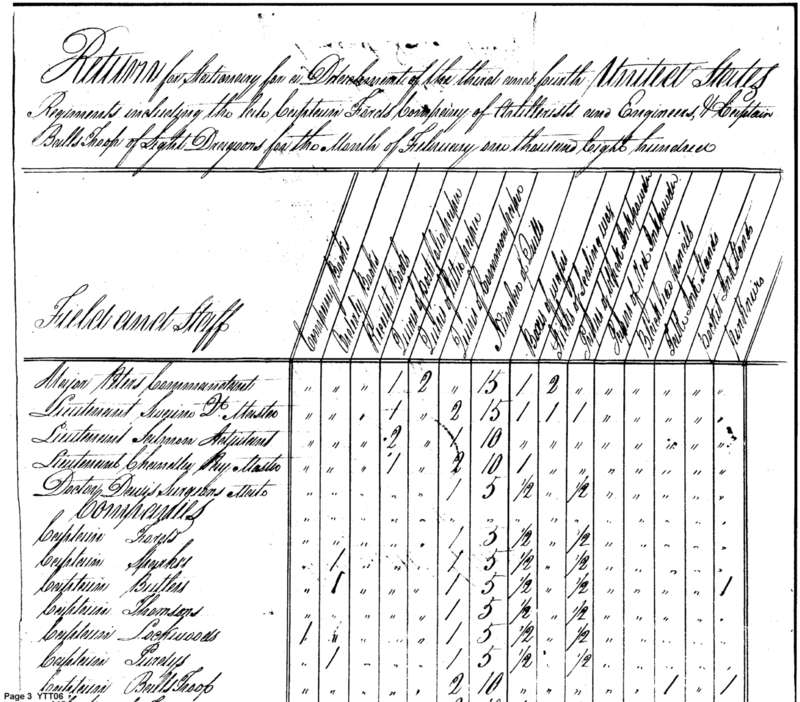 Return for Stationary for a Detachment of the third and fourth United States
Regiments including the late Captain Fords Company of Artillerists and Engineers, & Captain
Balls Troop of Light Dragoons for the Month of February one thousand eight hundred
Field and Staff
Company Books
Orderly Books
Quires of Letter paper
Quires of Common paper
Number of Quills
Papers of Black Ink powder
Papers of Red Ink powder
Black lead pencils
Ink Stands
Pocket Ink Stands
Pen Knives
Major Peters Commandant " " " 1 2 " 15 1 2 " " " " " "
Lieutenant Q. Master " " " 1 " 2 15 1 1 1 " " " " "
Lieutenant Salmon Adjutant " " " 2 " 1 10 " " " " " " " "
Lieutenant Pay Master " " " 1 " 2 10 1 " " " " " " "
Doctor Davis Surgeons Mate " " " " " 1 5 1/2 " 1/2 " " " " "
Companies " " " " " " " " " " " " " " "
Captain Fords " " " " " 1 5 1/2 " 1/2 " " " " "
Captain Sparks " 1 " " " 1 5 1/2 " 1/2 " " " " "
Captain Butlers " 1 " " " 1 5 1/2 " 1/2 " " " " 1
Captain Thomsons " " " " " 1 5 1/2 " 1/2 " " " " "
Captain Lockwoods 1 " " " " 1 5 1/2 " 1/2 " " " " "
Captain Purdys " 1 " " " 1 5 1/2 " 1/2 " " " " "
Captain Balls Troop " " " " " 2 10 " " " " " 1 " 1
Page 3 YTT06